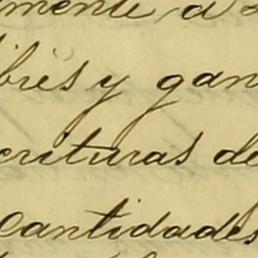 mente a
bres y gan
crituras de
Cantidades